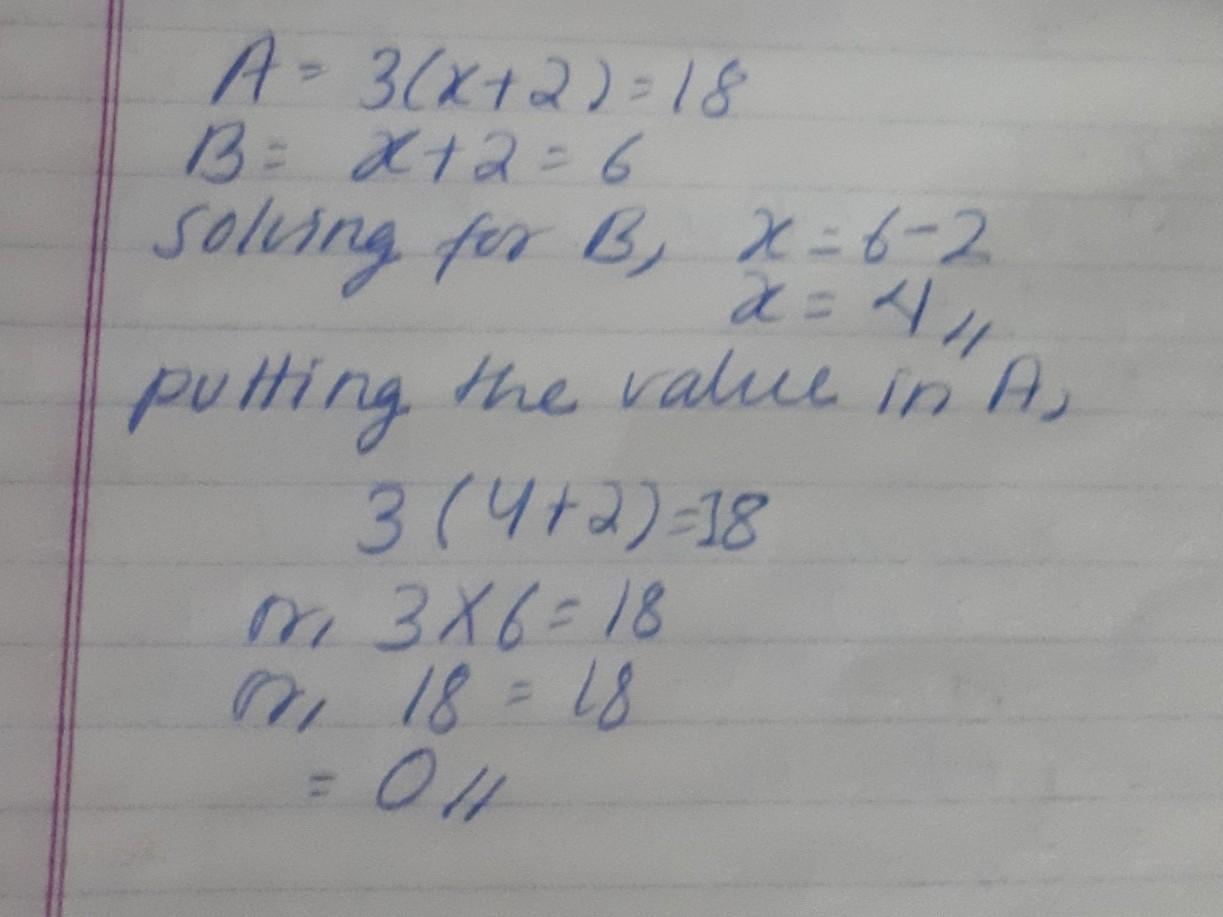 A = 3(x+2) = 18
B = x+2 = 6
solving for B, x = 6-2
x = 4 //
putting the value in A,
3(4+2) = 18
or, 3×6 = 18
or, 18 = 18
= 0 //